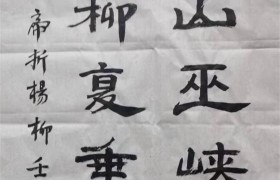 山巫峽
柳复垂
帝折楊柳壬